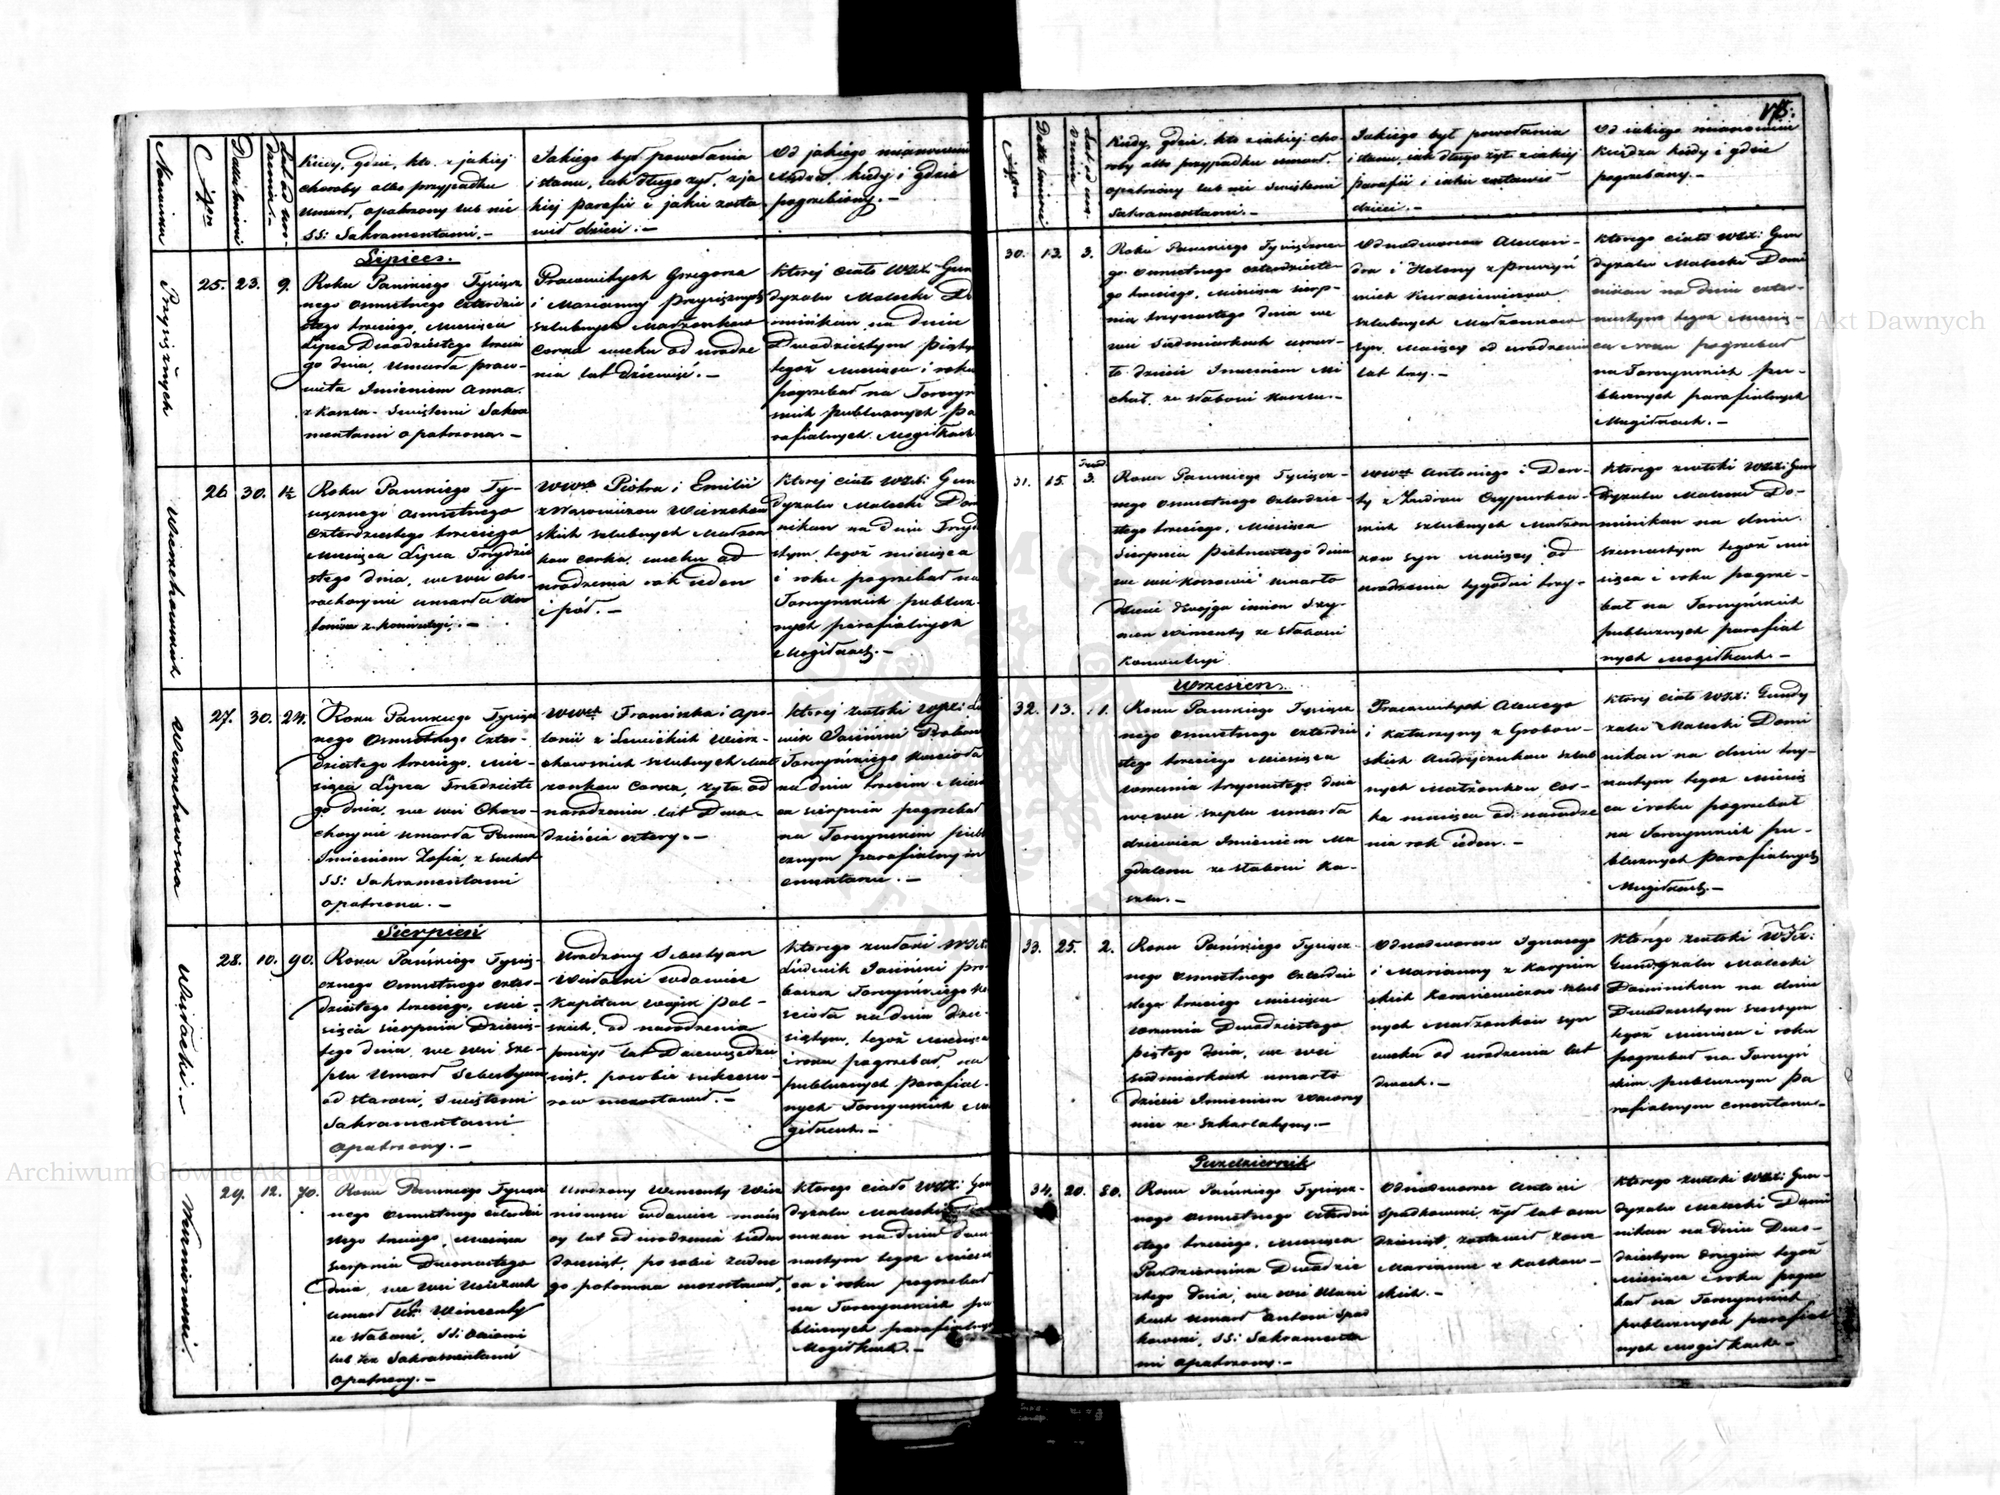 175.
Nazwisko
Cyfra
Data śmierci
Lat od uro-
dzenia.-
Kiedy, gdzie, kto, z jakiej
choroby albo przypadku
Umarł, opatrzony lub nie
SS: Sakramentami.-
Jakiego był powołania
i stanu, iak długo żył, z ja
kiej parafii i jakie zosta
wił dzieci.-
Od jakiego mianowicie
Xiędza, kiedy i gdzie
pogrzebiony.-
Przysiężnych
25. 23. 9.
Lipiec.
Roku Pańskiego Tysiącz
nego Osmsetnego Czterdzie
stego trzeciego, Miesiąca
Lipca Dwudziestego trzecie
go dnia, Umarła praco-
wita Imieniem Anna
z Kaszlu. Swiętemi Sakra
mentami opatrzona.-
Pracowitych Gregorza
i Marianny Przysiężnych
szlubnych Małżonków
Corka wieku od urodze
nia lat dziewięć.-
Ktorej Ciało WX: Gun
dyzalw Malecki Do
minikan, na dniu
Dwudziestym Piątym
tegoż Miesiąca i roku
pogrzebał na Torczyń
skich publicznych Pa
rafialnych Mogiłkach
Wierzchowskich
26 30. 1½
Roku Pańskiego Ty-
siącznego Osmsetnego
Czterdziestego trzeciego
Miesiąca Lipca Trzydzie
stego dnia, we wsi Cho-
rochorynie umarła An
tonina z konwulsyi.-
WWch Piotra i Emilii
z Wierzchow
skich szlubnych Małżon
kow Corka, wieku od
urodzenia rok ieden
i pół.-
Ktorej Ciało WX: Gun
dyzalw Malecki Domi
nikan na dniu Trzydzie
stym tegoż miesiąca
i roku pogrzebał na
Torczyńskich publicz-
nych parafialnych
Mogiłkach.-
Wierzchowska
27. 30. 24.
Roku Pańskiego Tysiącz
nego Osmsetnego Czter-
dziestego trzeciego, Mie-
siąca Lipca Trzydzieste
go dnia, we wsi Choro-
chorynie umarła Panna
Imieniem Zofia, z suchot
SS: Sakramentami
Opatrzona.-
WWch Franciszka i Apo-
lonii z Lewickich Wierz-
chowskich szlubnych Mał
żonkow Corka, żyła od
narodzenia lat Dwa-
dzieścia cztery.-
Ktorej zwłoki WX: Lud
wik Jasiński Proboszcz
Torczyńskiego Kościoła
na dniu trzecim Miesią
ca sierpnia pogrzebał
na Torczyńskim publi
cznym parafialnym
cmentarzu.-
Wiszocki.-
28. 10. 90.
Sierpień
Roku Pańskiego Tysią-
cznego Osmsetnego czter-
dziestego trzeciego, Mie-
siąca sierpnia Dziesią-
tego dnia, we wsi Sze-
plu Umarł Sebestyan
od starości, Swiętemi
Sakramentami
Opatrzony.-
Urodzony Sebestyan
wdowiec
Kapitan Woysk Pol-
skich, od narodzenia
przeżył lat Dziewięćdzie
siąt, po sobie sukcesso-
row niezostawił.-
Ktorego zwłoki WX:
Ludwik Jasiński pro
boszcz Torczyńskiego Ko
ścioła na dniu dzie-
siątym, tegoż Miesiąca
i roku pogrzebał, na
publicznych Parafial-
nych Torczyńskich Mo
giłkach.-
29. 12. 70.
Roku Pańskiego Tysiącz
nego Osmsetnego czterdzie
stego trzeciego, Miesiąca
sierpnia Dwunastego
dnia, we wsi
umarł Ur: Wincenty
ze słabości, SS:
lub tez Sakramentami
Opatrzony.-
Urodzony Wincenty
wdowiec maią
cy lat od urodzenia siedm
dziesiąt, po sobie żadne
go potomka niezostawił.
Ktorego ciało WX: Gun
dyzalw Malecki
nikan na dniu Dwu
nastym tegoż Miesią
ca i roku pogrzebał
na Torczyńskich pu
blicznych parafialnych
Mogiłkach.-
Cyfra
Data śmierci
Lat od uro-
dzenia
Kiedy, gdzie, kto z iakiej cho-
roby albo przypadku umarł,
opatrzony lub nie Swiętemi
Sakramentami.-
Jakiego był powołania
i stanu, iak długo żył z iakiej
parafii i iakie zostawił
dzieci.-
Od iakiego mianowicie
Xiędza kiedy i gdzie
pogrzebany.-
30. 13. 3.
Roku Pańskiego Tysiączne
go Osmsetnego czterdzieste-
go trzeciego, Miesiąca sierp-
nia trzynastego dnia we
wsi Sadmiarkach umar-
ło dziecie Imieniem Mi
chał, ze słabości kaszlu.-
Odnodworcow Alexan-
dra i Heleny z
Kurasiewiczow
szlubnych Małżonkow
syn, Maiący od urodzenia
lat trzy.-
Ktorego ciało WX: Gun
dyzalw Malecki Domi
nikan na dniu czter-
nastym tegoż Miesią-
ca i roku pogrzebał
na Torczyńskich pu-
blicznych parafialnych
Mogiłkach.-
31. 15. 3.
Roku Pańskiego Tysiącz-
nego Osmsetnego Czterdzie-
stego trzeciego, Miesiąca
Sierpnia Piętnastego dnia
we wsi umarło
dziecie dwojga imion Szy-
mon Wincenty ze słabości
konwulsyi
WWch Antoniego i Doro-
ty z
szlubnych Małżon
kow syn Maiący od
urodzenia tygodni trzy.-
Ktorego zwłoki WX: Gun
dyzalw Malecki Do-
minikan na dniu
szesnastym tegoż Mie
siąca i roku pogrze-
bał na Torczyńskich
publicznych parafial
nych Mogiłkach.-
32. 13. 1.
Wrzesień.
Roku Pańskiego Tysiącz
nego Osmsetnego czterdzie
stego trzeciego Miesiąca
wrzesnia trzynastego dnia
we wsi Szeplu umarła
dziewica Imieniem Ma
gdalena ze słabości ka-
szlu.-
Pracowitych Alexego
i Katarzyny z Grabow-
skich Andrzejczukow szlub
nych Małżonkow Cor-
ka maiąca od narodze
nia rok ieden.-
Ktorej ciało WX: Gundy
zalw Malecki Domi
nikan na dniu trzy-
nastym tegoż Miesią
ca i roku pogrzebał
na Torczyńskich pu-
blicznych Parafialnych
Mogiłkach.-
33. 25. 2.
Roku Pańskiego Tysiącz-
nego Osmsetnego Czterdzie
stego trzeciego Miesiąca
wrzesnia Dwudziestego
piątego dnia, we wsi
Sadmiarkach umarło
dziecie Imieniem
ze szkarlatyny.-
Odnodworcow Ignacego
i Marianny z Karpiń
skich szlub
nych Małżonkow syn
wieku od urodzenia lat
dwoch.-
Ktorego zwłoki WX:
Gundyzalw Malecki
Dominikan na dniu
Dwudziestym szostym
tegoż Miesiąca i roku
pogrzebał na Torczyń
skim publicznym Pa
rafialnym cmentarzu.-
34. 20. 80.
Pazdziernik
Roku Pańskiego Tysiącz-
nego Osmsetnego czterdzie
stego trzeciego, Miesiąca
Pazdziernika Dwudzie
stego dnia, we wsi
umarł Antoni Spad
kowski, SS: Sakramenta
mi opatrzony.-
Odnodworzec Antoni
Spadkowski, żył lat osm
dziesiąt, zostawił żonę
Mariannę z
skich.-
Ktorego zwłoki WX: Gun-
dyzalw Malecki Domi
nikan na dniu Dwu-
dziestym drugim tegoż
Miesiąca i roku pogrze
bał na Torczyńskich
publicznych parafial
nych Mogiłkach.-
Archiwum Główne Akt Dawnych
Archiwum Główne Akt Dawnych